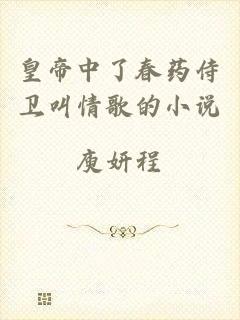 皇帝中了春药侍
卫叫情歌的小说
庾妍程